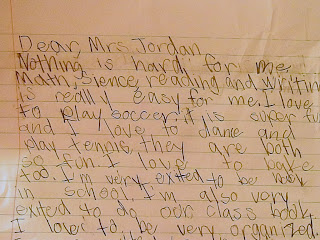 Dear, Mrs. Jordan
Nothing is hard for me.
Math, Sience, reading and writing
is really easy for me. I love
to play soccer it is super fu
and I love to dance and
play tennis, they are both
so fun. I love to bake
too. I'm very exited to be back
in school. I'm also very
exited to do our class book,
I love to be very organized.